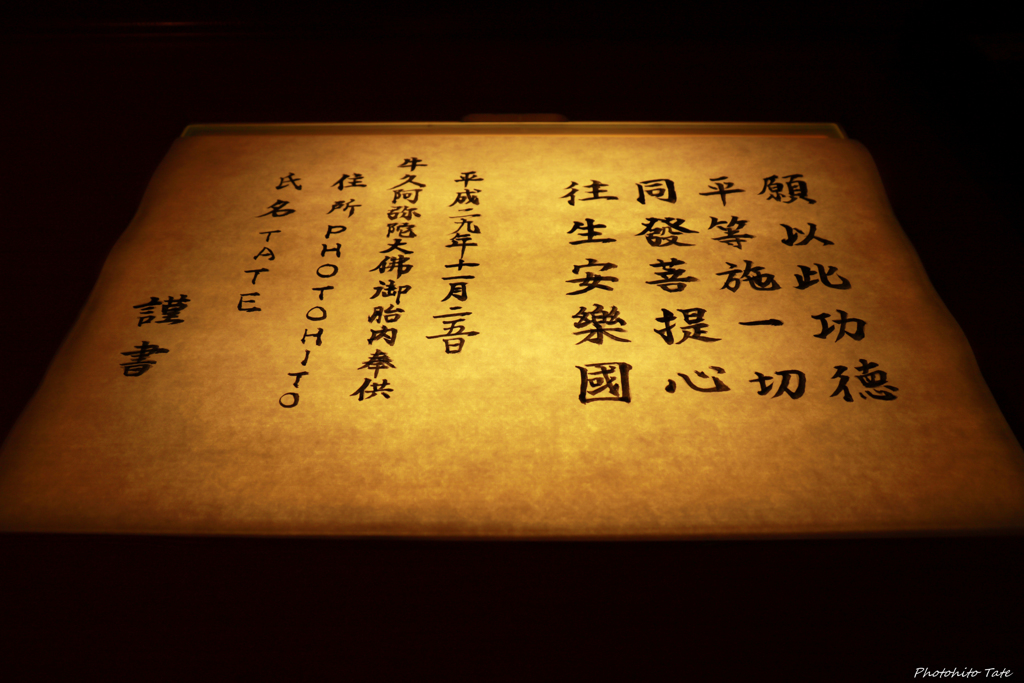 願以此功德
平等施一切
同發菩提心
往生安樂國
平成二九年十一月二五日
牛久阿弥陀大佛御胎内奉供
住所PHOTOHITO
氏名TATE
謹書
Photohito Tate